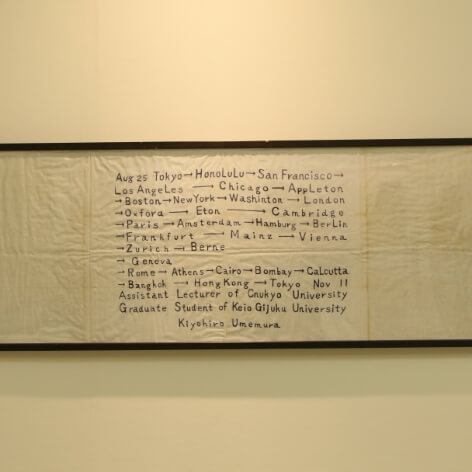 Aug 25 Tokyo→HonoLuLu→San Francisco→
Los AngeLes → Chicago → AppLeton
→Boston→New York→Washinton → London
→Oxford → Eton → Cambridgo
→Paris→Amsterdam→Hamburg→BerLin
→Frankfurt → Mainz → Vienna
→Zurich→Berne
→ Geneva
→Rome→ Athens→Cairo→Bombay→CaLcutta
→Bangkok → Hong Kong → Tokyo Nov 11
Assistant Lecturer of Cnukyo University
Graduate Student of Keio Gijuku University
Kiyohiro Umemura